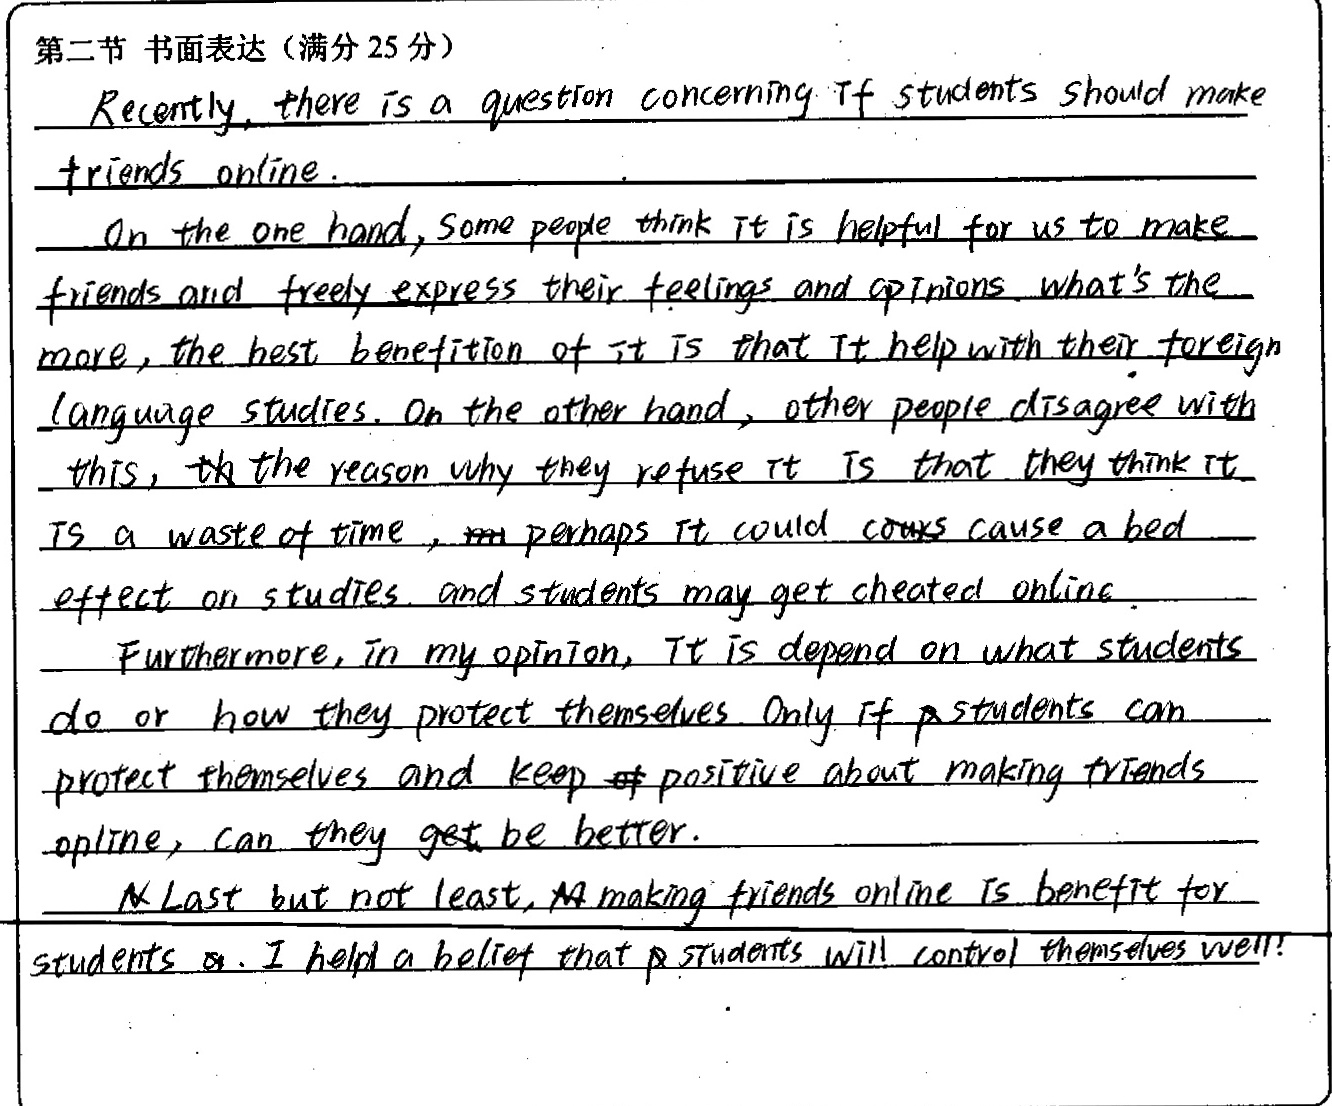 第二节 书面表达（满分 25 分）
Recently, there is a question concerning if students should make
friends online.
On the one hand, some people think it is helpful for us to make
friends and freely express their feelings and opinions what's the
more, the best benefition of it is that it help with their foreign
language studies. On the other hand, other people disagree with
this, the reason why they refuse it is that they think it
is a waste of time, perhaps it could cause a bed
effect on studies. and students may get cheated online.
Furthermore, in my opinion, it is depend on what students
do or how they protect themselves. Only if students can
protect themselves and keep positive about making friends
opline, can they be better.
Last but not least, making friends online is benefit for
students. I held a belief that students will control themselves well!